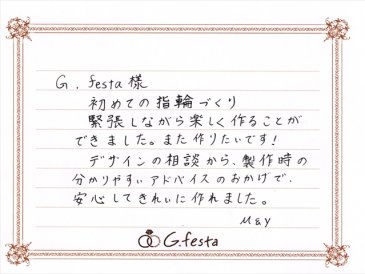 G.festa様
初めての指輪づくり
緊張しながら楽しく作ることが
できました。また作りたいです!
デザインの相談から、製作時の
分かりやすいアドバイスのおかげで、
安心してきれいに作れました。
M&Y
G.festa